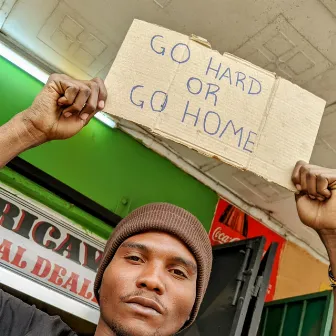 GO HARD
OR
GO HOME
Coca-Cola
RICA
AL DEAL